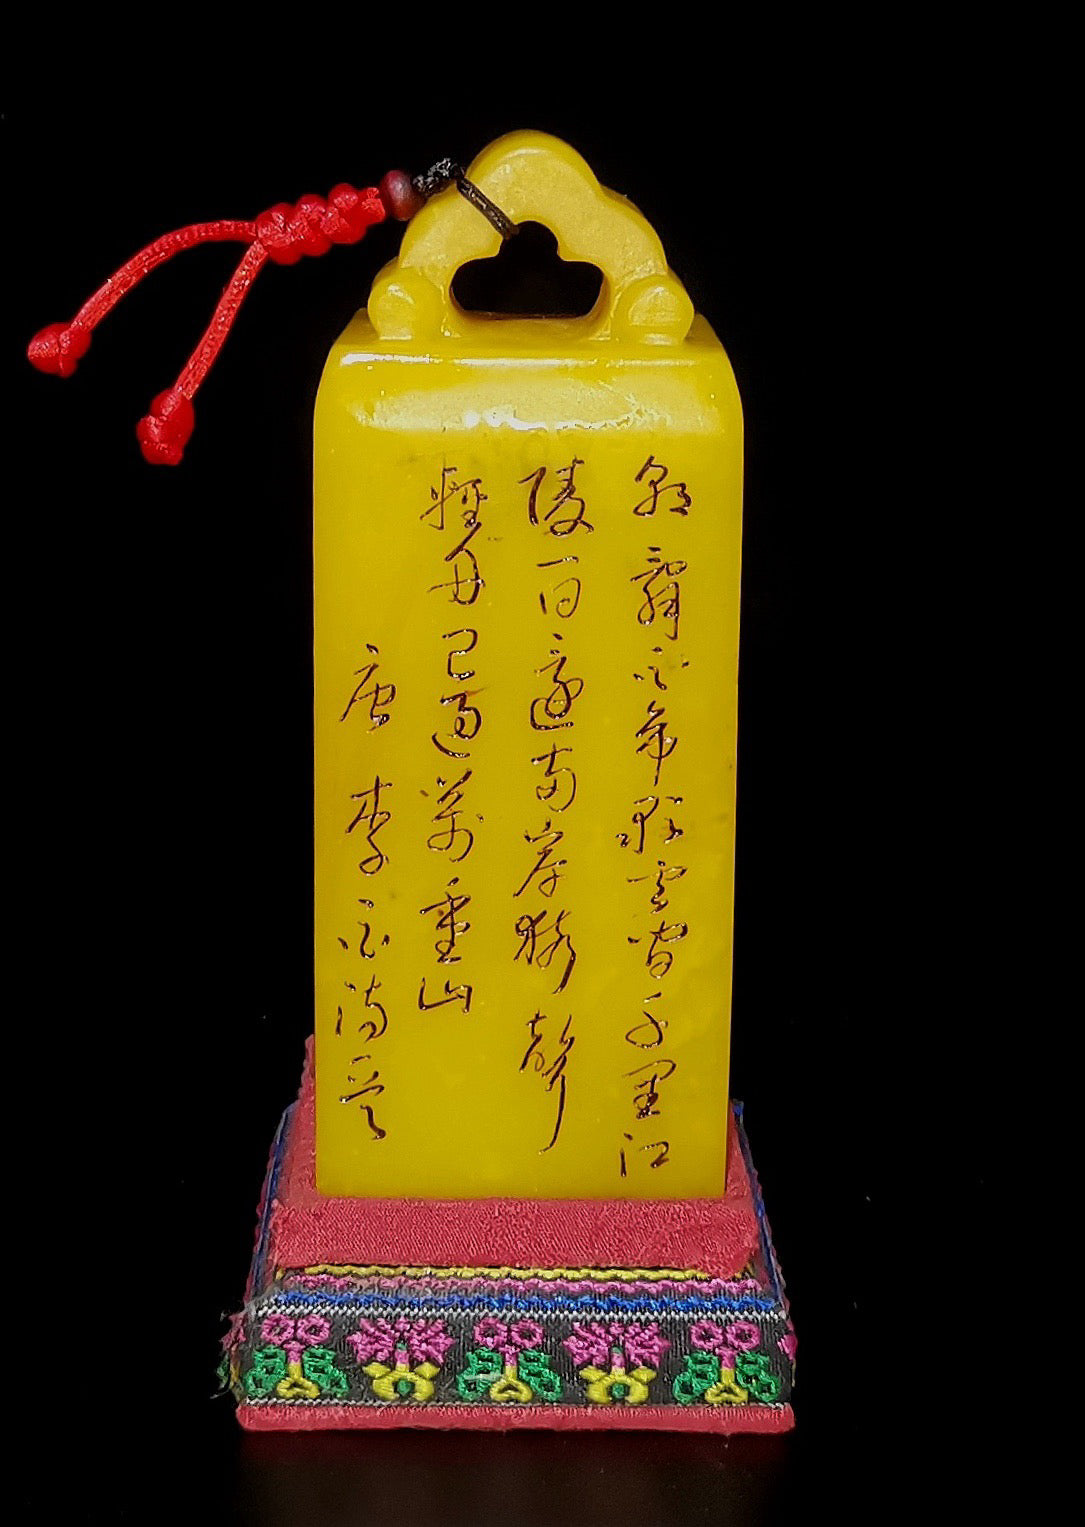 朝辭白帝彩雲間千里江
陵一日還兩岸猿聲
輕舟已過萬重山
唐李白詩意